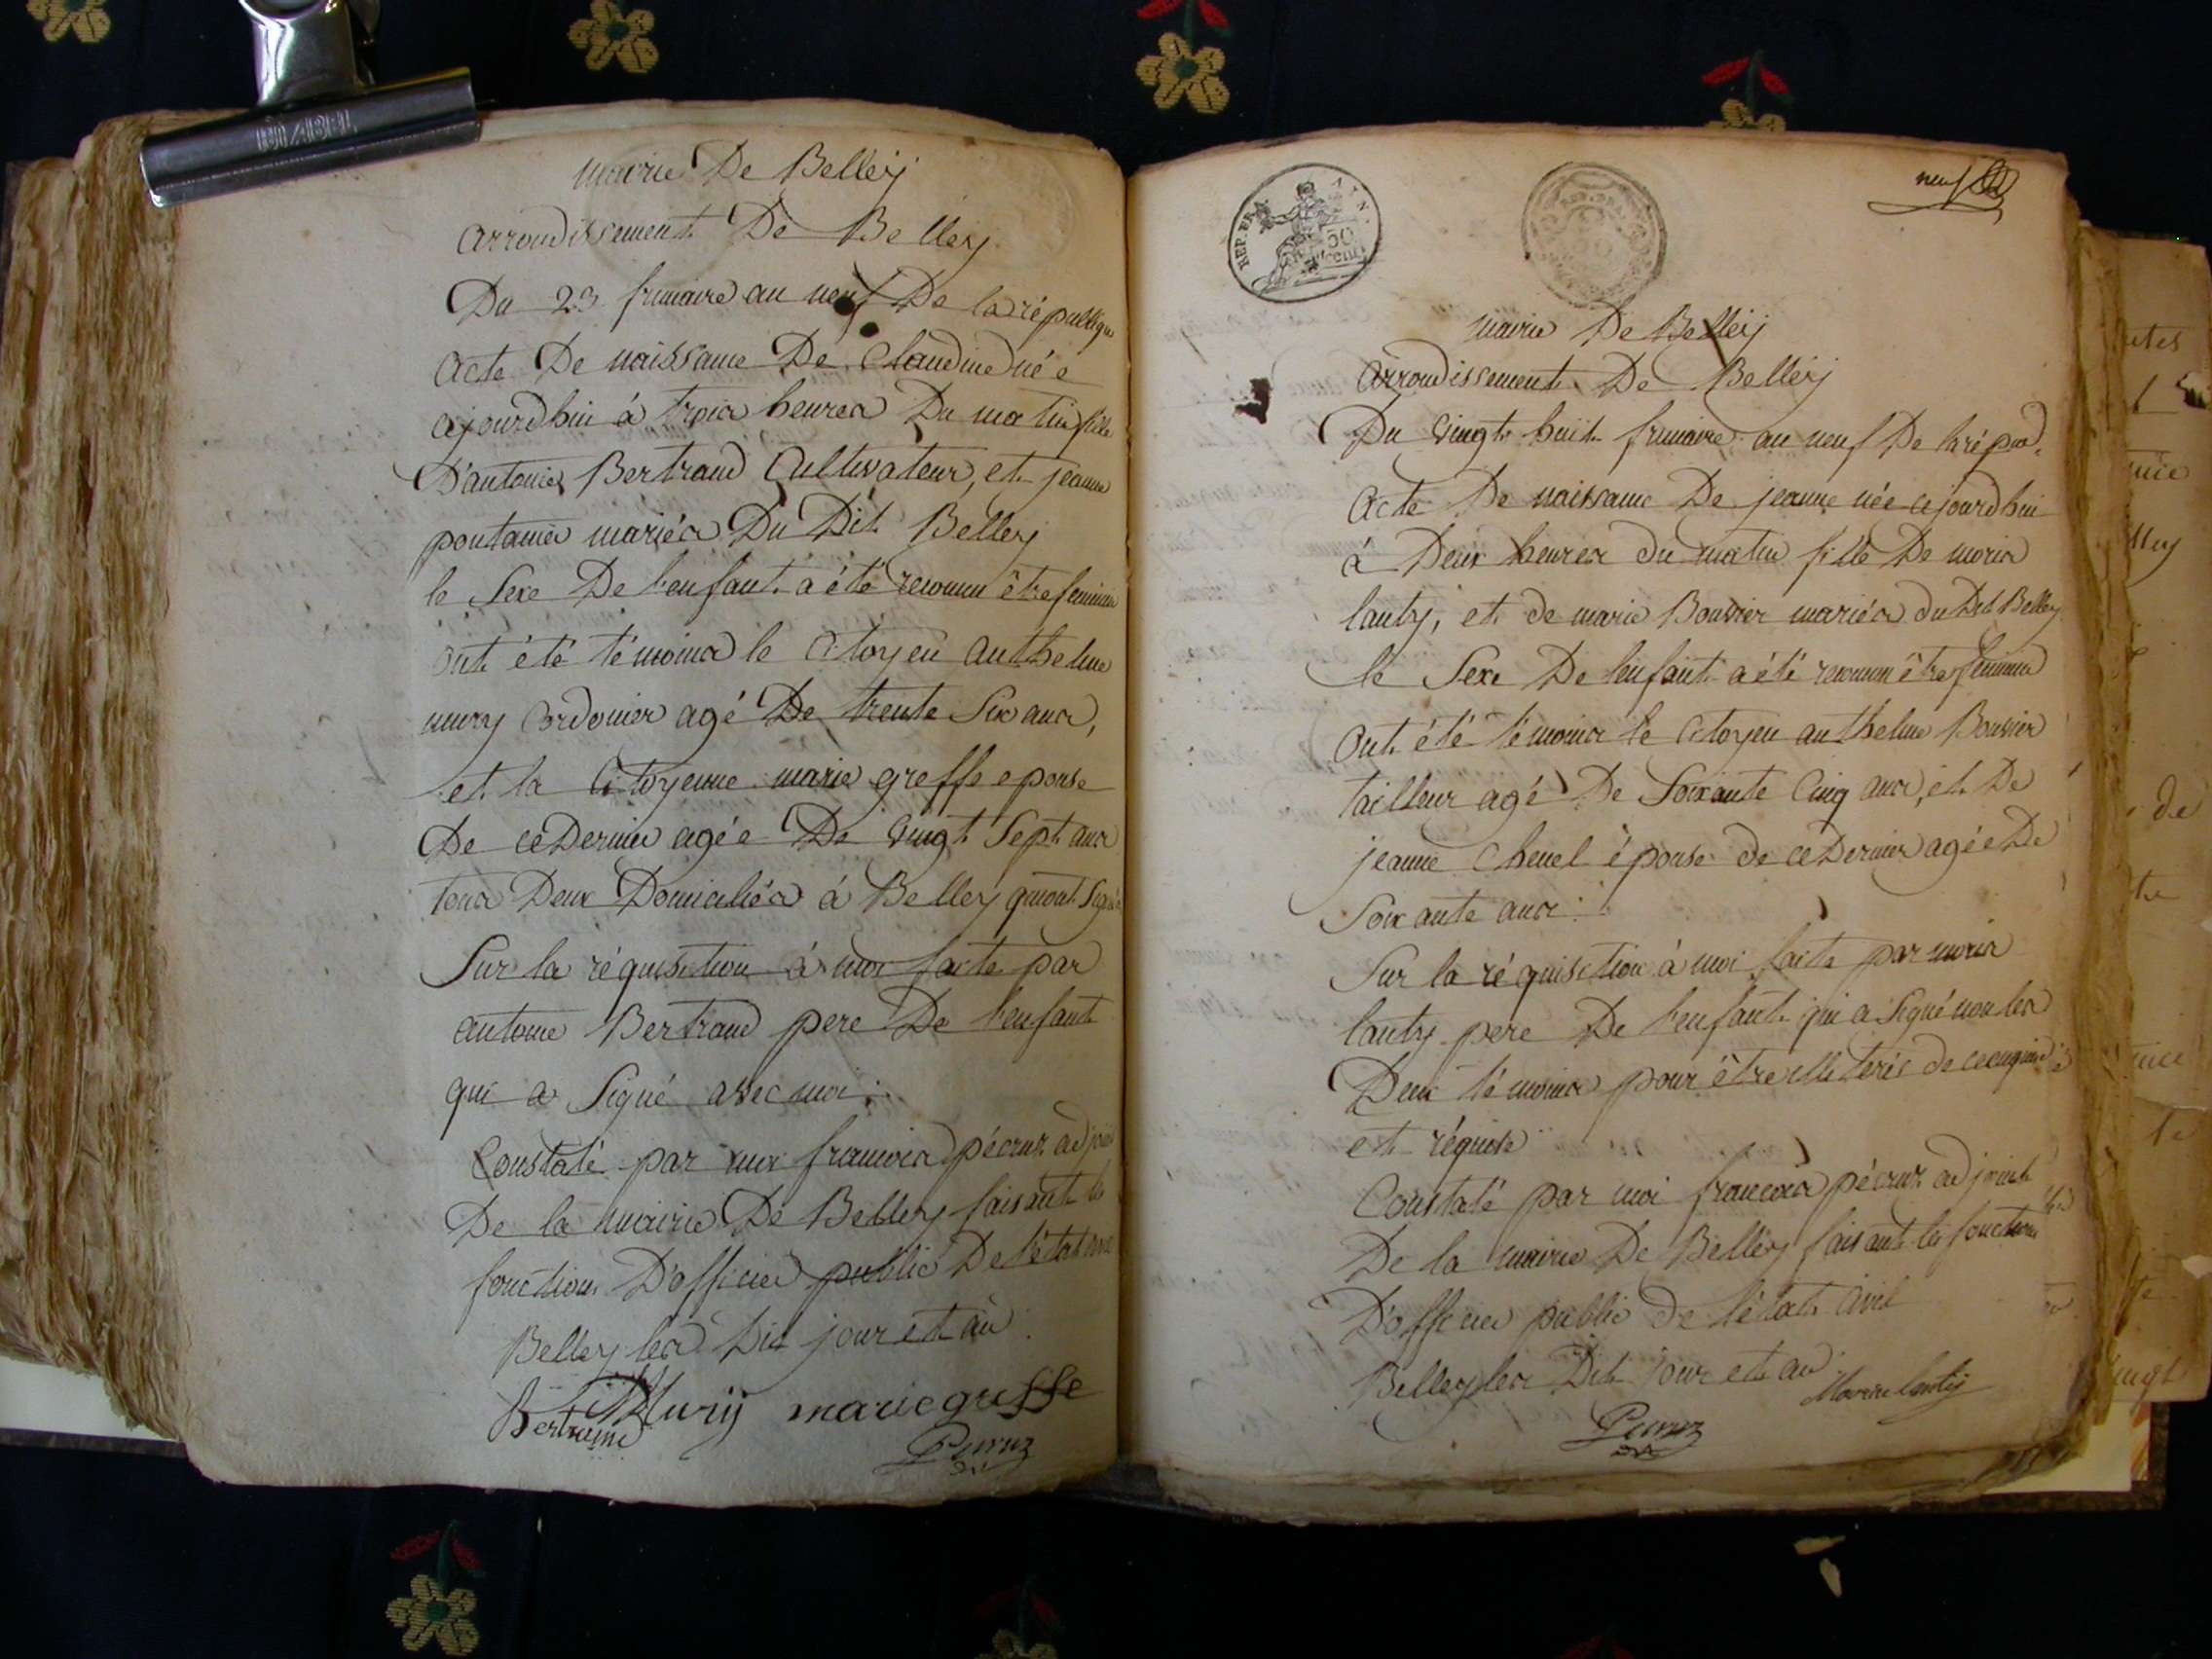 mairie De Belleÿ
arrondissement De Belleÿ
Du 23 frimaire an neuf De la république
acte De naissance De Claudine née
ajourdhui à trois heures Du matin fille
D'antoine Bertrand Cultivateur, et jeanne
pontanier mariés Du Dit Belley
le Sexe De l'enfant a été reconnu être feminin
ont été témoins le Citoyen anthelme
mury Cordonier agé De trente Six ans,
et la Citoyenne marie greffe epouse
De ceDernier agée De vingt Sept ans
tous Deux Domiciliés à Belley qui ont Signé
Sur la réquisition à moi faite par
antoine Bertrand pere De l'enfant
qui a Signé avec moi
Constaté par moi francois pécruz adjoint
De la mairie De Belley faisant les
fonctions D'officier public De l'état civil
Belley les Dit jour et an
Bertrand Mury marie greffe
Pecruz
REP. FRA.
50
cent
neuf
mairie De Belleÿ
arrondissement De Belleÿ
Du vingt huit frimaire an neuf De la répub.
acte De naissance De jeanne née cejourdhui
à Deux heures du matin fille De moris
lanty, et de marie Bouvier mariés du Dit Belley
le Sexe De l'enfant a été reconnu être feminin
ont été témoins le Citoyen anthelme Bouvier
tailleur agé De Soixante Cinq ans, et De
jeanne Chenel épouse de ceDernier agée De
Soixante ans
Sur la réquisition à moi faite par moris
lanty pere De l'enfant qui a Signé non les
Deux témoins pour être illiterés de ce enquis
et réquise
Constaté par moi francois pécruz adjoint
De la mairie De Belley faisant les fonctions
D'officier public de l'état Civil
Belley les Dit jour et an
Morice lanty
Pecruz